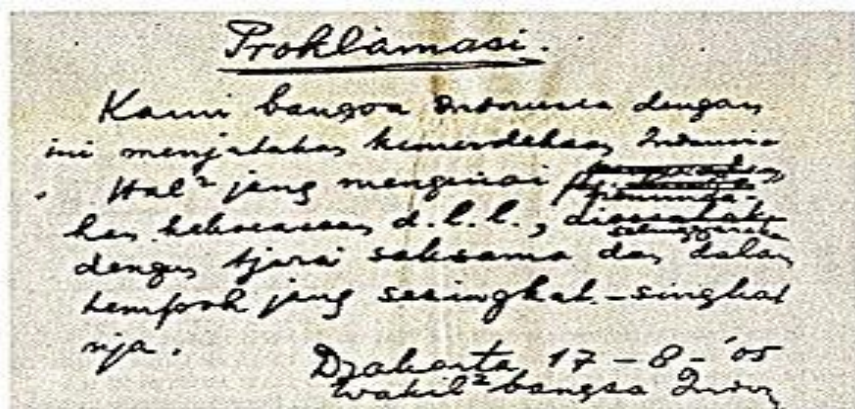 Proklamasi.
Kami bangsa Indonesia dengan
ini menjatakan kemerdekaan Indonesia
. Hal² jang mengenai
kan kekoeasaan d.l.l.,
dengan tjara saksama dan dalam
tempoh jang sesingkat-singkat
nja.
Djakarta 17 - 8 - '05
Wakil² bangsa Indon